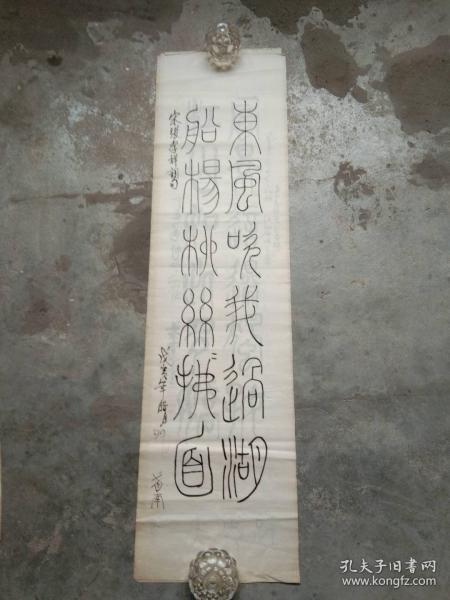 東風吹我過湖
船楊柳絲拂面
宋張孝祥詞句
癸亥年
孔夫子旧书网
www.kongfz.com